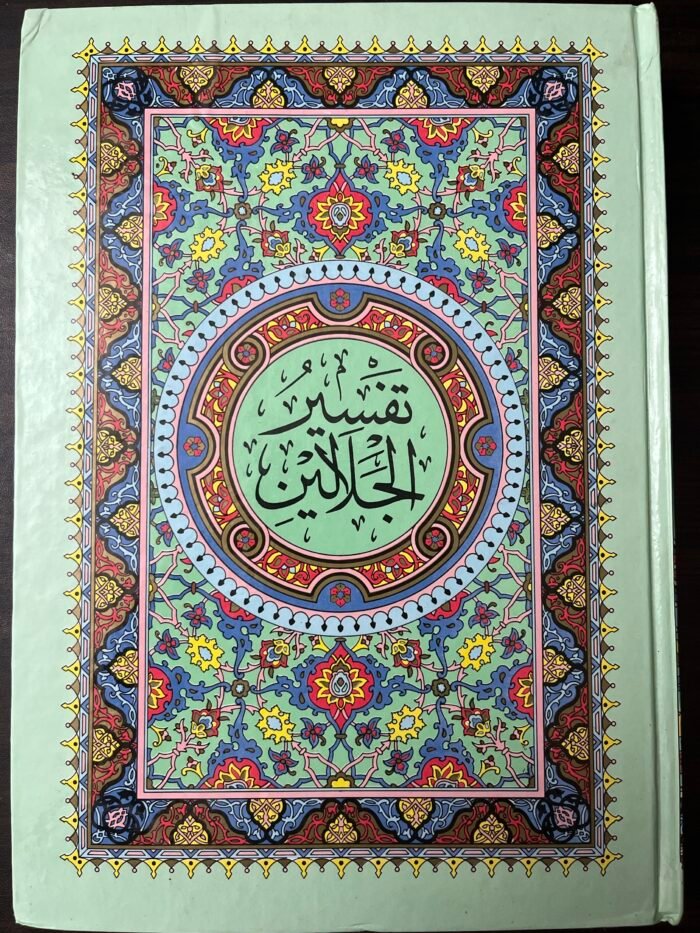 تَفْسِيرُ
الْجَلَالَيْنِ